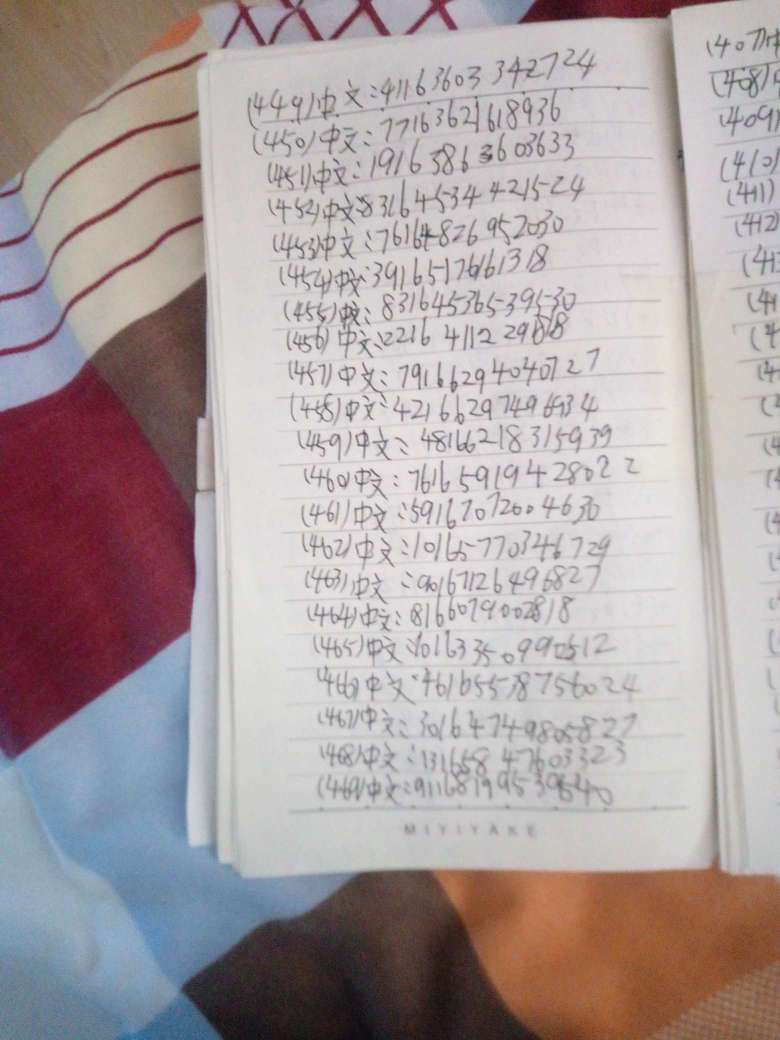 (449)中文:41163603342724
(450)中文:77163621618936
(451)中文:19163863603633
(452)中文:83164534421524
(453)中文:76164826952030
(454)中文:39165176161318
(455)中文:83164536539530
(456)中文:2216411229
(457)中文:79166294040727
(458)中文:42166297496934
(459)中文:48166218315939
(460)中文:76165919428022
(461)中文:59167072004630
(462)中文:10165770346729
(463)中文:90167126496827
(464)中文:8166079002818
(465)中文:
(466)中文:46165538756024
(467)中文:30164749805827
(468)中文:13165847603323
(469)中文:
MIYIYAKE
(407)中
(408)
(409)
(410)
(411)
(412